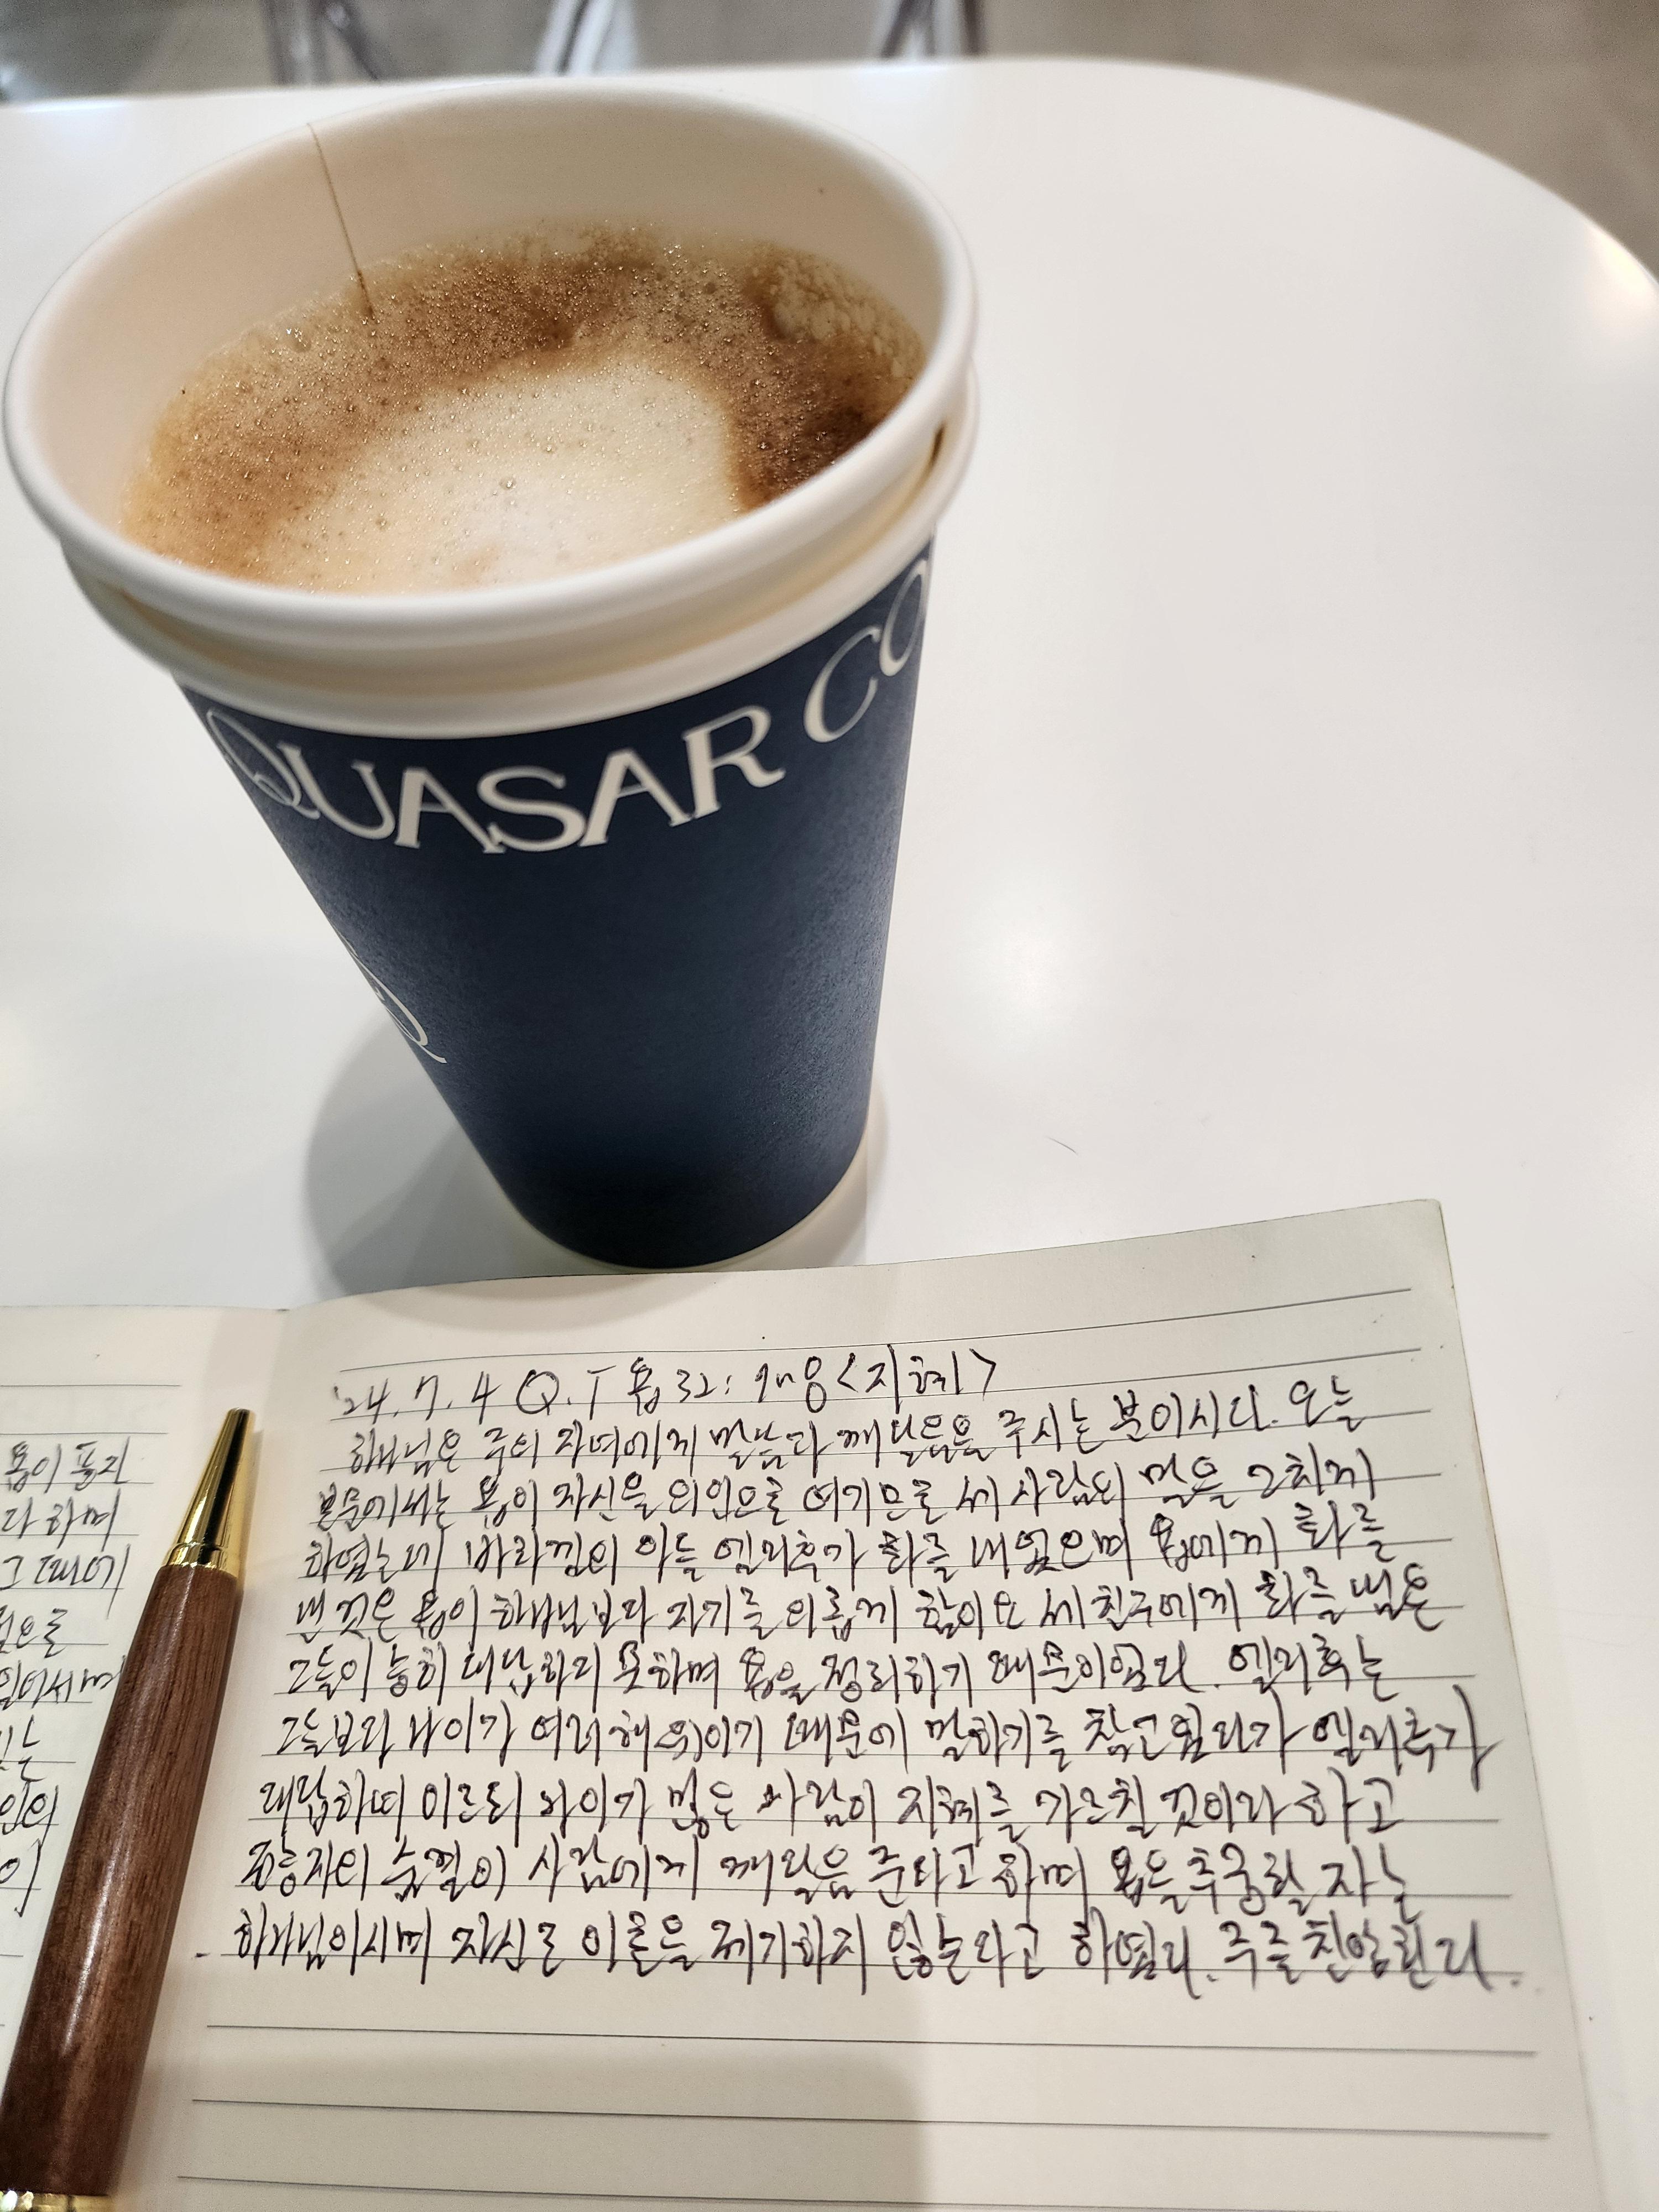 QUASAR CO
Q
'24. 7. 4 Q.T 욥 32: 1~8 <지혜>
하나님은 주의 자녀에게 말씀과 깨달음을 주시는 분이시다. 오늘
본문에서는 욥이 자신을 의인으로 여기므로 세 사람의 말을 그치게
하였는데 바라껠의 아들 엘리후가 화를 내었으며 욥에게 화를
낸 것은 욥이 하나님보다 자기를 의롭게 함이요 세 친구에게 화를 냄은
그들이 능히 대답하지 못하며 욥을 정죄하기 때문이었다. 엘리후는
그들보다 나이가 여러 해 위이기 때문에 말하기를 참고 있다가 엘리후가
대답하며 이르되 나이가 많은 사람이 지혜를 가르칠 것이라 하고
전능자의 숨결이 사람에게 깨달음을 준다고 하며 욥을 추궁할 자는
하나님이시며 자신은 이론을 제기하지 않는다고 하였다. 주를 찬양한다.
욥이
다 하며
그 때에
으로